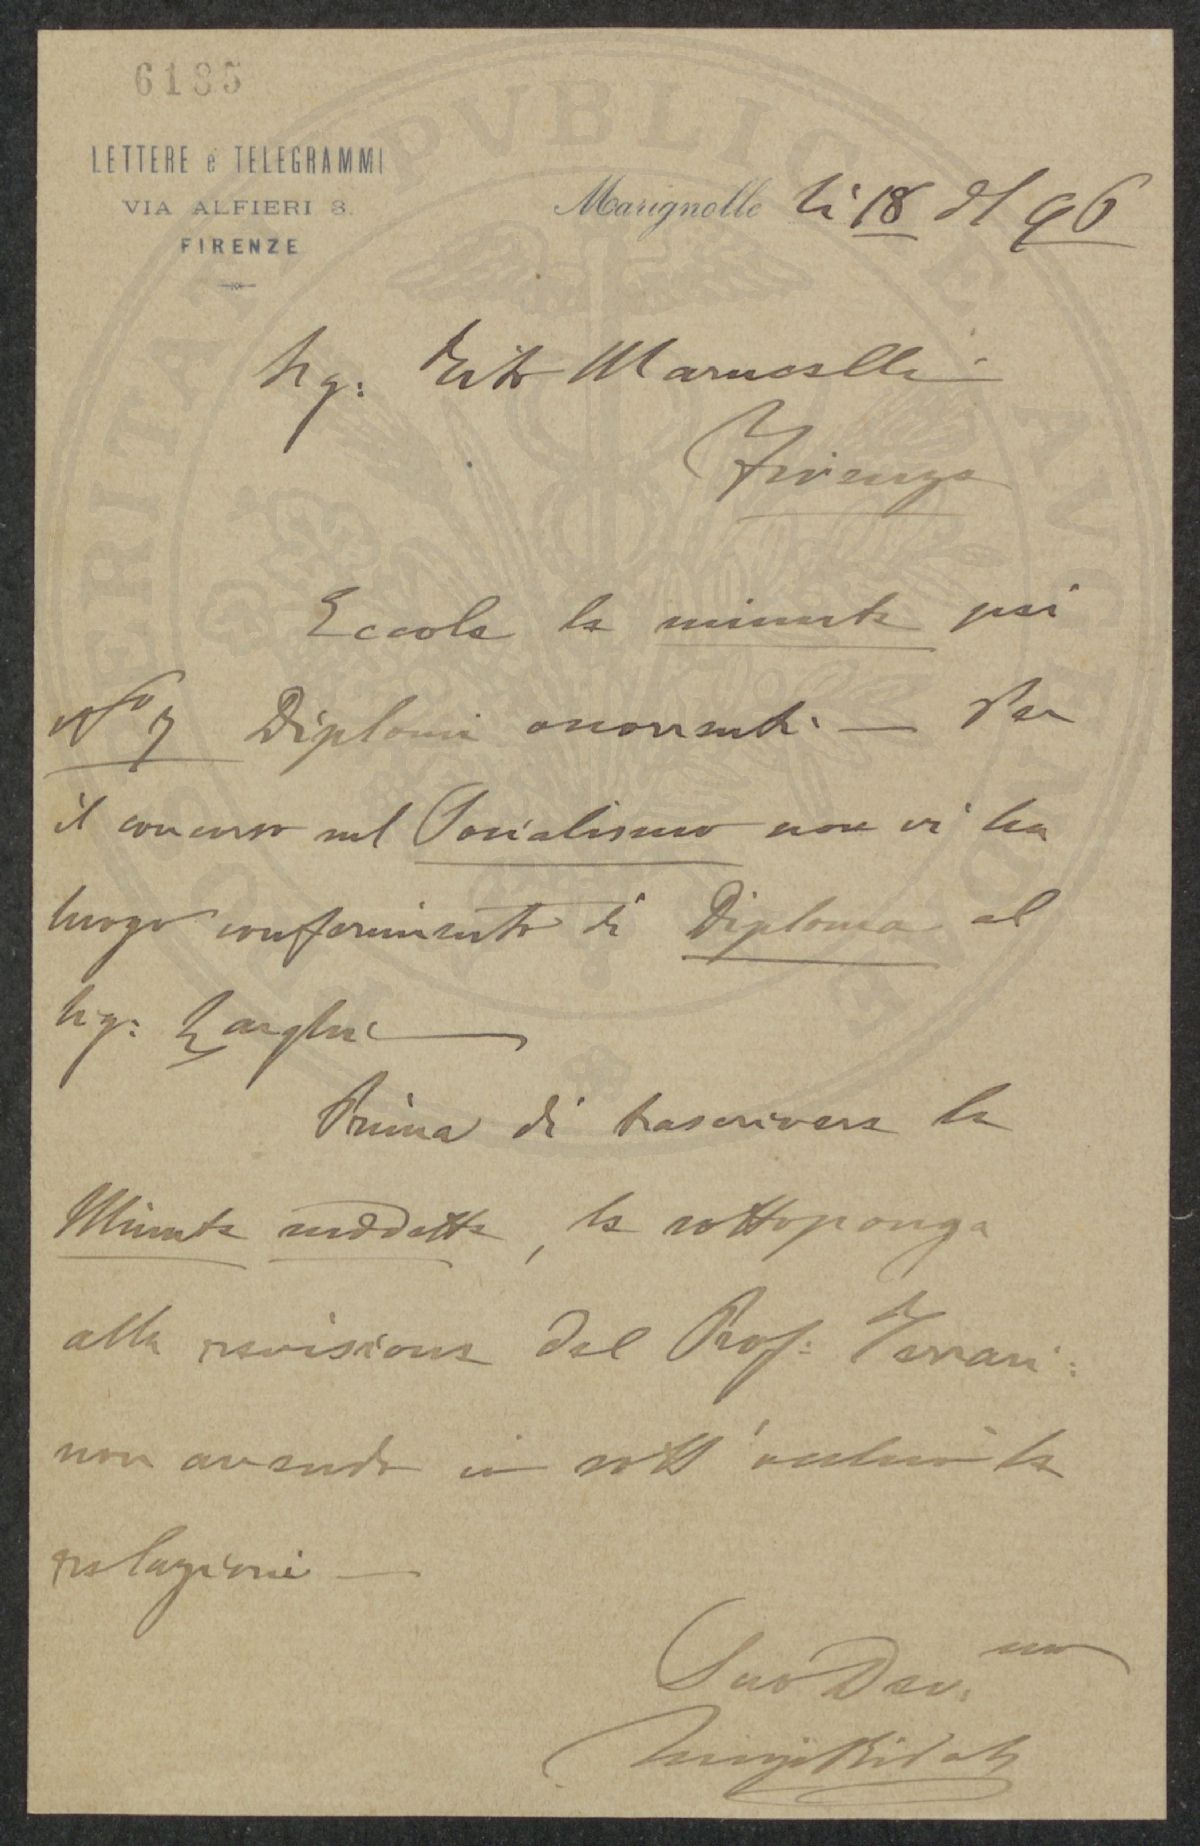 6185
LETTERE e TELEGRAMMI
VIA ALFIERI 8.
FIRENZE
Marignolle li 18 96
Sig: Marucelli
Firenze
Eccole la minuta pei
No 7 Diplomi occorrenti — Per
il concorso sul Socialismo non vi ha
luogo conferimento di Diploma al
Sig:
Prima di trascrivere la
Minuta suddetta, la sottoponga
alla revisione del Prof: Ferrari:
non avendo io sott'occhio la
relazioni —
Suo Dev.mo